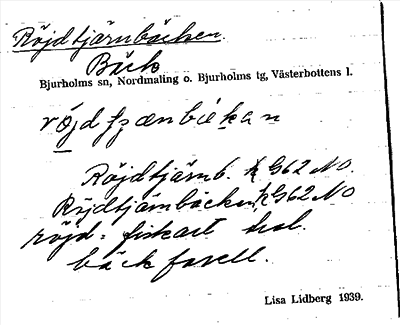 Röjdtjärnbäcken.
Bäck
Bjurholms sn, Nordmaling o. Bjurholms tg, Västerbottens l.
Röjdtjärnb. k G62 NO.
Röjdtjärnbäcken k G62 NO
röjd = fiskart
bäckforell.
Lisa Lidberg 1939.